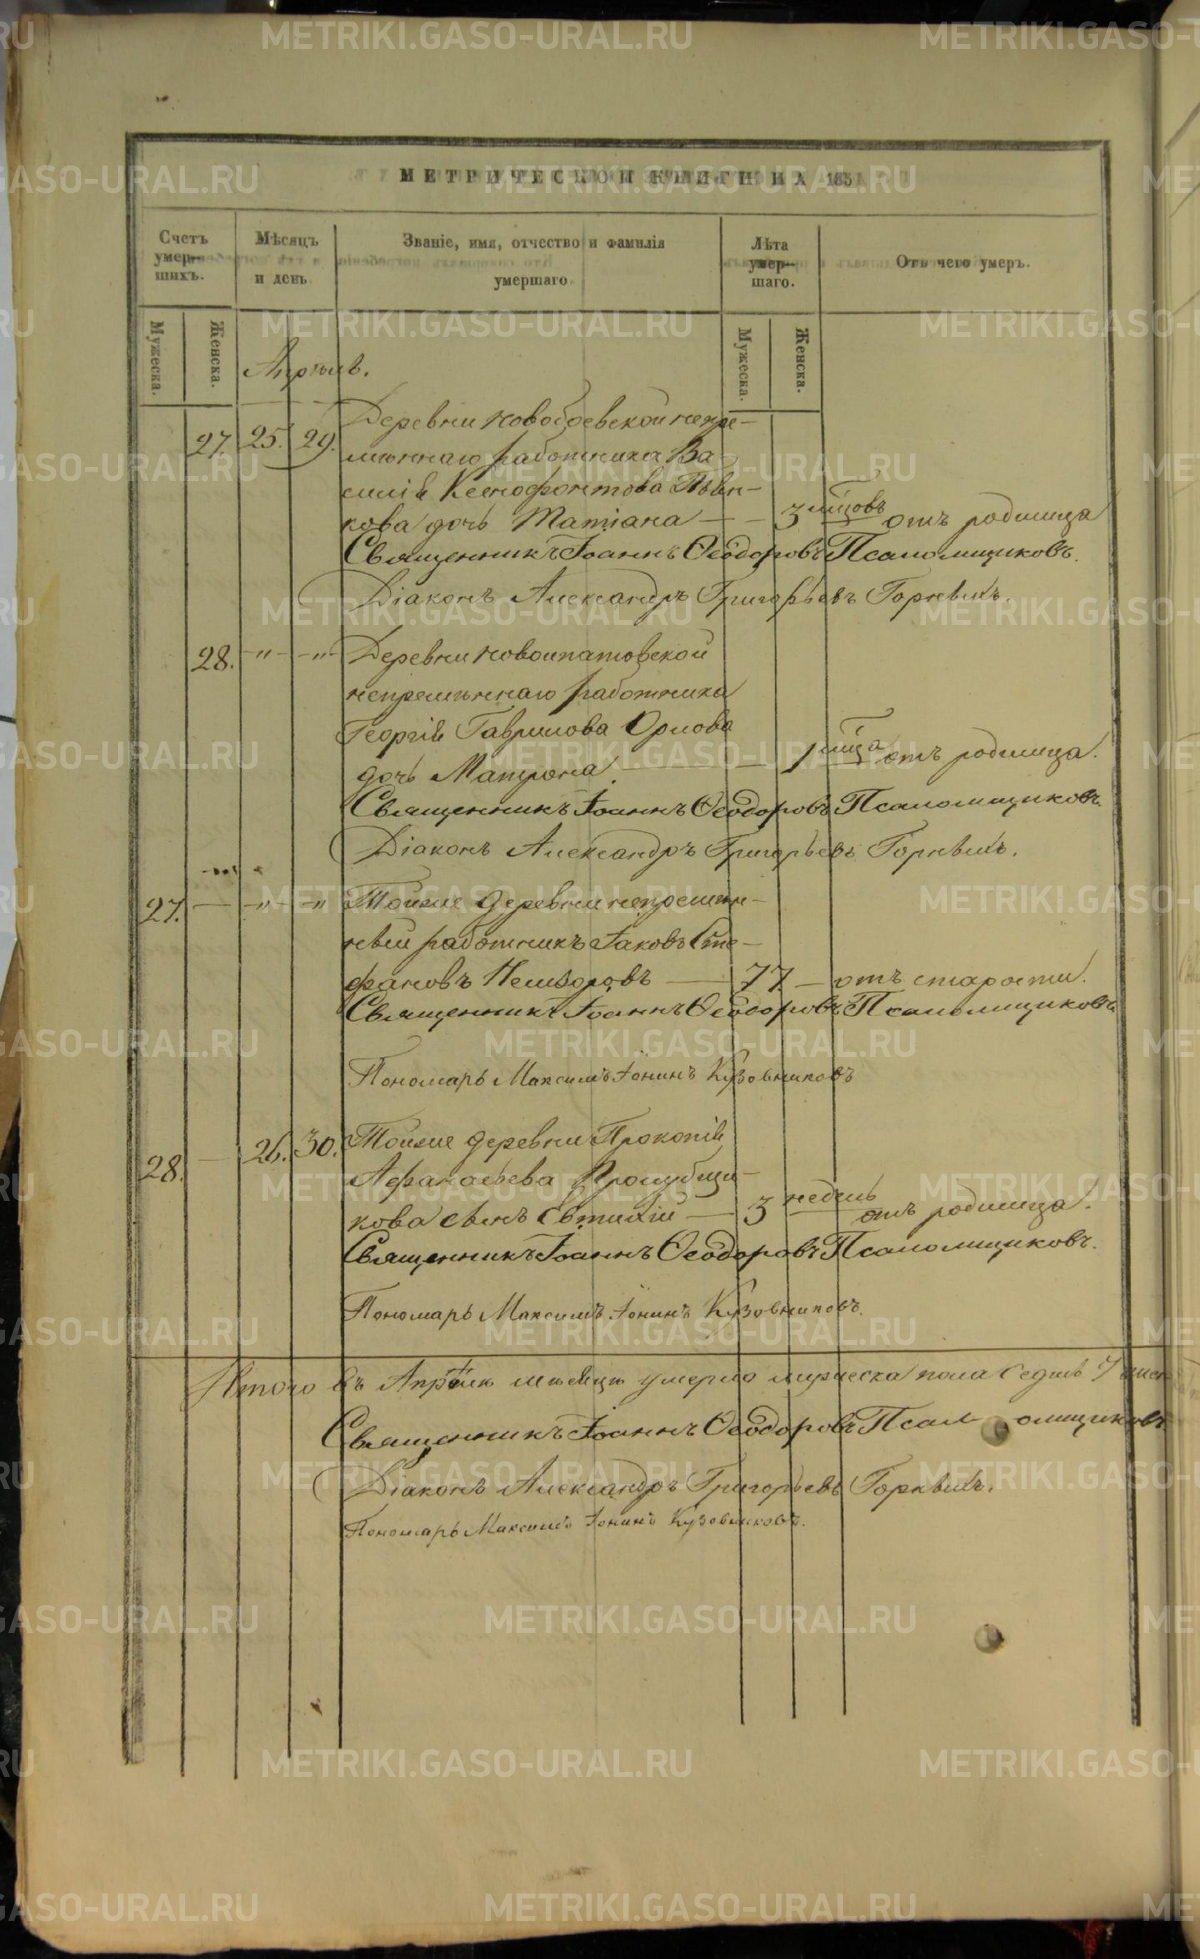 METRIKI.GASO-URAL.RU
МЕТРИЧЕСКОЙ КНИГИ НА 1851
Счетъ умер— шихъ.
Мѣсяцъ и день
Званіе, имя, отчество и фамилія умершаго
Лѣта умер— шаго.
Отъ чего умеръ.
Мужеска.
Женска.
Мужеска.
Женска.
Апрѣль.
Деревни Новобоевской непре—
27. 25. 29. мѣннаго работника Ва—
силія Ксенофонтова Пьян—
кова дочь Татіана — — 3 мѣсцовъ отъ родимца
Священникъ Іоаннъ Ѳеодоровъ Псаломщиковъ.
Діаконъ Александръ Григорьевъ Горныхъ.
28. —"— —"— Деревни Новоипатовской
непремѣннаго работника
Георгія Гаврилова Орлова
дочь Матрона. — — 1 мѣсца отъ родимца.
Священникъ Іоаннъ Ѳеодоровъ Псаломщиковъ.
Діаконъ Александръ Григорьевъ Горныхъ.
27. — —"— —" Тойже деревни непремѣн—
ный работникъ Іаковъ Сте—
фановъ — 77 — отъ старости.
Священникъ Іоаннъ Ѳеодоровъ Псаломщиковъ
Пономарь Максимъ Іонинъ Кузовниковъ
28. — 26. 30. Тойже деревни Прокопія
Афанасьева Пролубщи—
кова сынъ Евтихій — 3 недель отъ родимца.
Священникъ Іоаннъ Ѳеодоровъ Псаломщиковъ.
Пономарь Максимъ Іонинъ Кузовниковъ.
Итого въ Апрѣлѣ мѣсяцѣ умерло мужеска пола седмь 7
Священникъ Іоаннъ Ѳеодоровъ Псаломщиковъ
Діаконъ Александръ Григорьевъ Горныхъ.
Пономарь Максимъ Іонинъ Кузовниковъ.